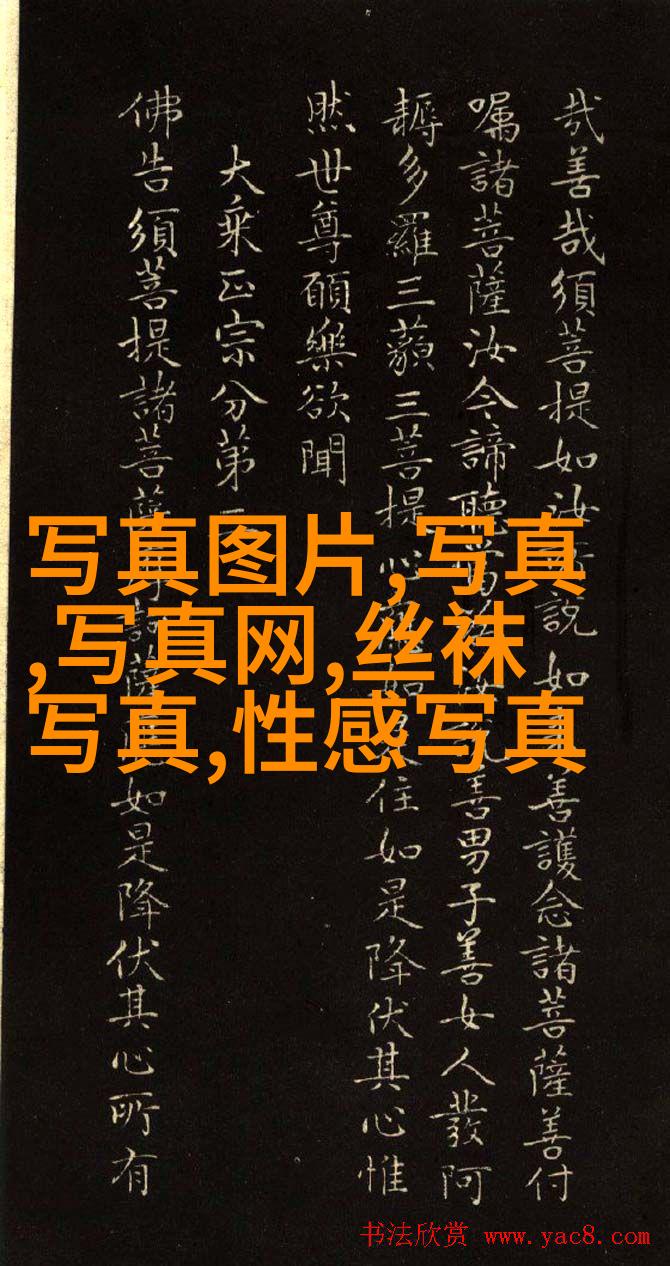 哉善哉須菩提如汝說如善護念諸菩薩善付
囑諸菩薩汝今諦聽當善男子善女人發阿
耨多羅三藐三菩提心如住如是降伏其心惟
然世尊願樂欲聞
大乘正宗分第
佛告須菩提諸菩薩訶薩如是降伏其心所有
写真图片,写真
,写真网,丝袜
写真,性感写真
书法欣赏 www.yac8.com